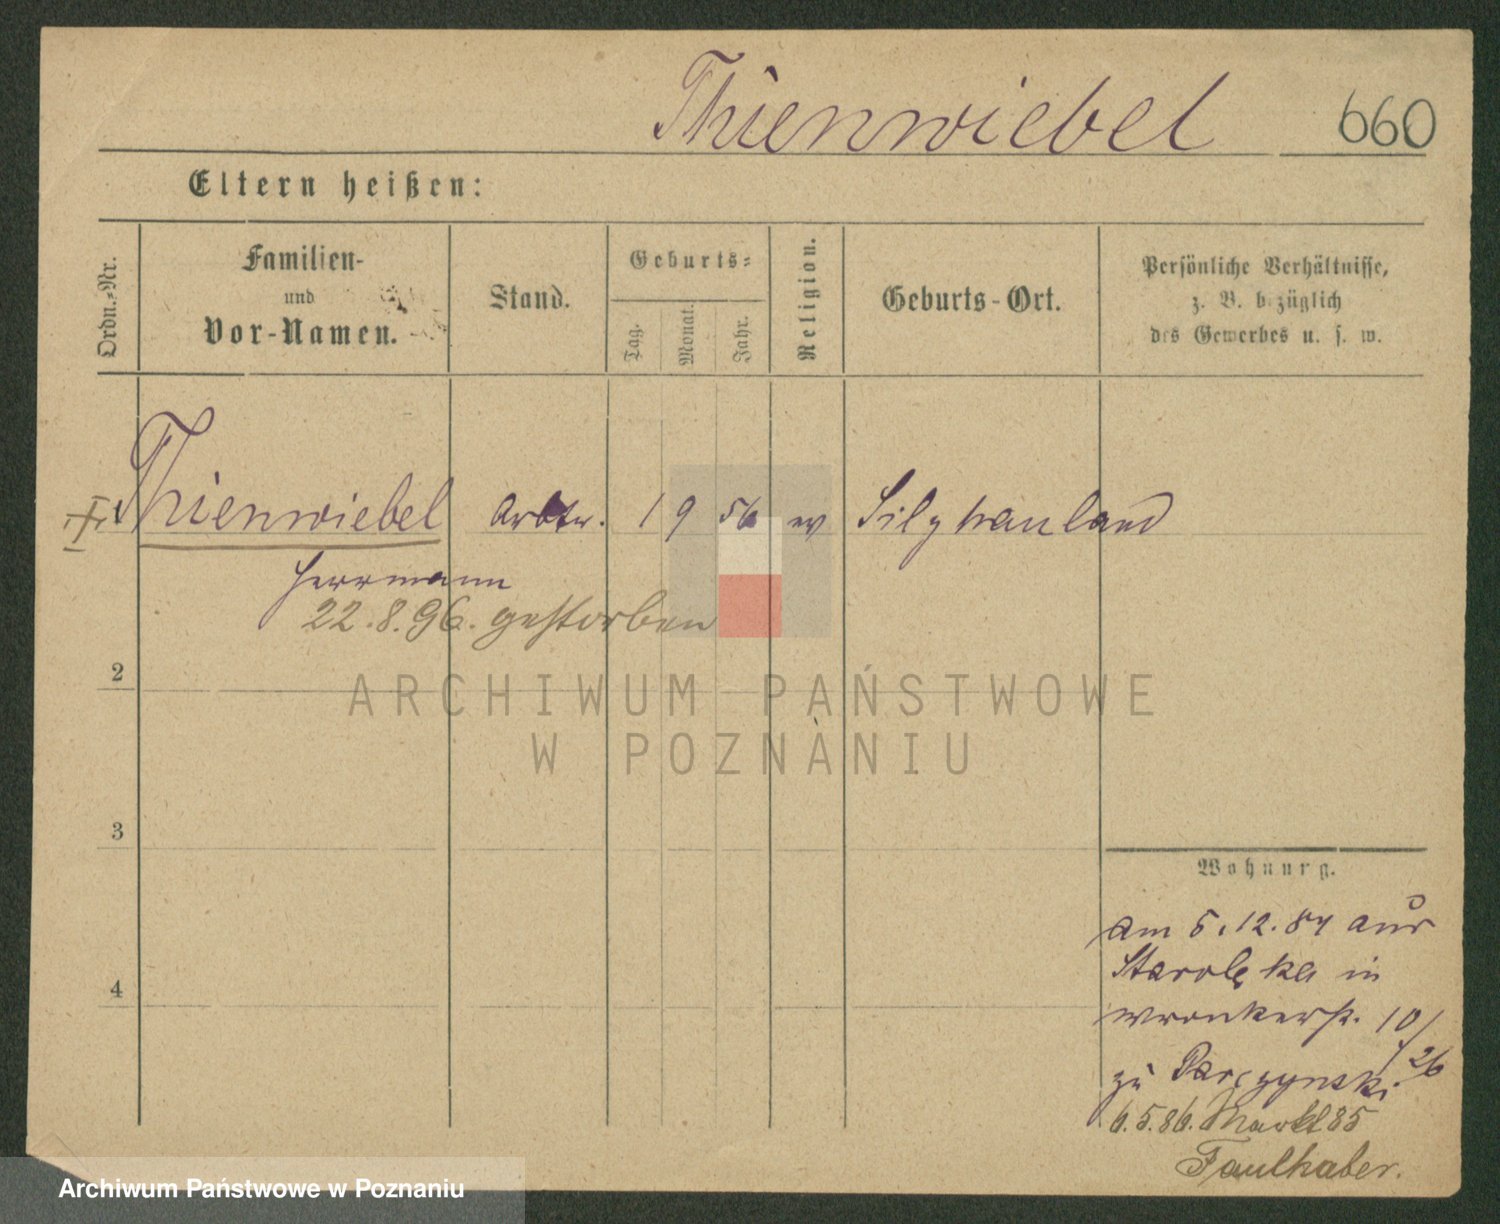 Thienwiebel 660
Eltern heißen:
Ordn.-Nr.
Familien-
und
Vor-Namen.
Stand.
Geburts-
Tag.
Monat.
Jahr.
Religion.
Geburts-Ort.
Persönliche Verhältnisse,
z. B. bezüglich
des Gewerbes u. s. w.
1 Thienwiebel Arbtr. 1 9 56 ev
Herrmann
22.8.96. gestorben
2
ARCHIWUM PAŃSTWOWE
W POZNANIU
3
Wohnung.
4
am 5.12.84 aus
Starolęka in
Wronkerstr. 10/
26
zu
6.5.86. Markt 85
Faulhaber.
Archiwum Państwowe w Poznaniu